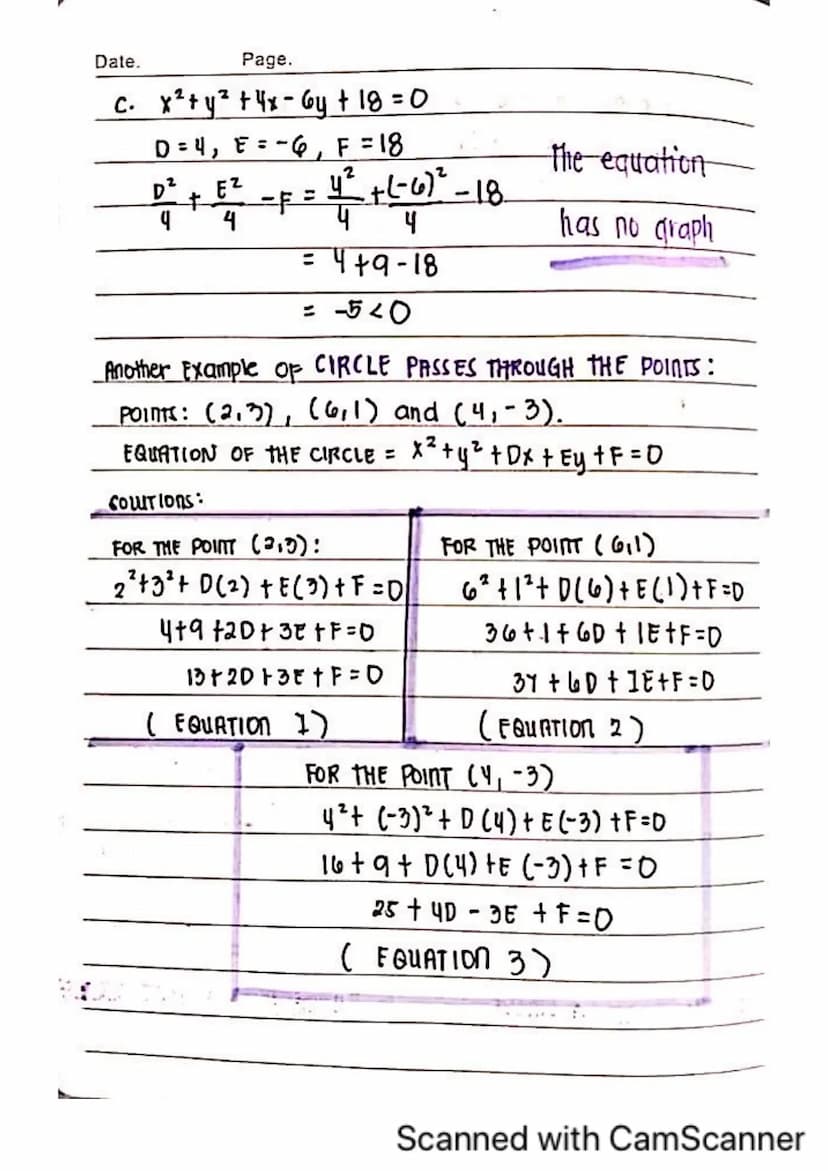 Date. Page.
C. x²+y²+4x-6y+18=0
D=4, E=-6, F=18
D²/4 + E²/4 -F = 4²/4 +(-6)²/4 -18
The equation
has no graph
= 4+9-18
= -5<0
Another Example OF CIRCLE PASSES THROUGH THE POINTS:
POINTS: (2,3), (6,1) and (4,-3).
EQUATION OF THE CIRCLE = x²+y²+Dx+Ey+F=0
SOLUTIONS:
FOR THE POINT (2,3):
2²+3²+ D(2) +E(3)+F=0
4+9+2D+3E+F=0
13+2D+3E+F=0
( EQUATION 1)
FOR THE POINT (6,1)
6²+1²+D(6)+E(1)+F=0
36+1+6D+1E+F=0
37+6D+1E+F=0
(EQUATION 2)
FOR THE POINT (4,-3)
4²+ (-3)²+ D(4)+E(-3)+F=0
16+9+D(4)+E(-3)+F=0
25+4D-3E+F=0
( EQUATION 3)
Scanned with CamScanner